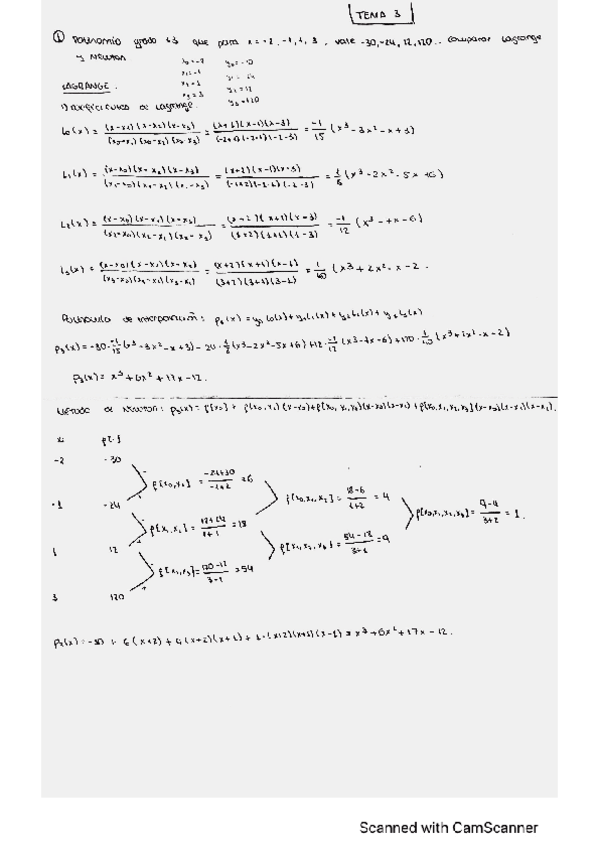 TEMA 3
① Polinomio grado ≤3 que para x = -2, -1, 1, 3, vale -30, -24, 12, 120. Comparar Lagrange
y Newton
x₀=-2 y₀=-30
x₁=-1 y₁=-24
LAGRANGE. x₂=1 y₂=12
x₃=3 y₃=120
1) de Lagrange.
L₀(x) = (x-x₁)(x-x₂)(x-x₃)/(x₀-x₁)(x₀-x₂)(x₀-x₃) = (x+1)(x-1)(x-3)/(-2+1)(-2-1)(-2-3) = -1/15 (x³-3x²-x+3)
L₁(x) = (x-x₀)(x-x₂)(x-x₃)/(x₁-x₀)(x₁-x₂)(x₁-x₃) = (x+2)(x-1)(x-3)/(-1+2)(-1-1)(-1-3) = 1/8 (x³-2x²-5x+6)
L₂(x) = (x-x₀)(x-x₁)(x-x₃)/(x₂-x₀)(x₂-x₁)(x₂-x₃) = (x+2)(x+1)(x-3)/(1+2)(1+1)(1-3) = -1/12 (x³-7x-6)
L₃(x) = (x-x₀)(x-x₁)(x-x₂)/(x₃-x₀)(x₃-x₁)(x₃-x₂) = (x+2)(x+1)(x-1)/(3+2)(3+1)(3-1) = 1/40 (x³+2x²-x-2.
Polinomio de interpolación: p₃(x) = y₀L₀(x)+y₁L₁(x)+y₂L₂(x)+y₃L₃(x)
p₃(x) = -30·-1/15(x³-3x²-x+3) -24·1/8(x³-2x²-5x+6)+12·-1/12(x³-7x-6)+120·1/40(x³+2x²-x-2)
p₃(x) = x³+6x²+17x-12.
Método de Newton: p₃(x) = f[x₀] + f[x₀,x₁](x-x₀)+f[x₀,x₁,x₂](x-x₀)(x-x₁)+f[x₀,x₁,x₂,x₃](x-x₀)(x-x₁)(x-x₂).
xᵢ f[·]
-2 -30
f[x₀,x₁] = -24+30/-1+2 = 6
-1 -24 f[x₀,x₁,x₂] = 18-6/1+2 = 4
f[x₁,x₂] = 12+24/1+1 = 18 f[x₀,x₁,x₂,x₃] = 9-4/3+2 = 1.
1 12 f[x₁,x₂,x₃] = 54-18/3+1 = 9
f[x₂,x₃] = 120-12/3-1 = 54
3 120
p₃(x) = -30 + 6(x+2) + 4(x+2)(x+1) + 1·(x+2)(x+1)(x-1) = x³+6x²+17x-12.
Scanned with CamScanner